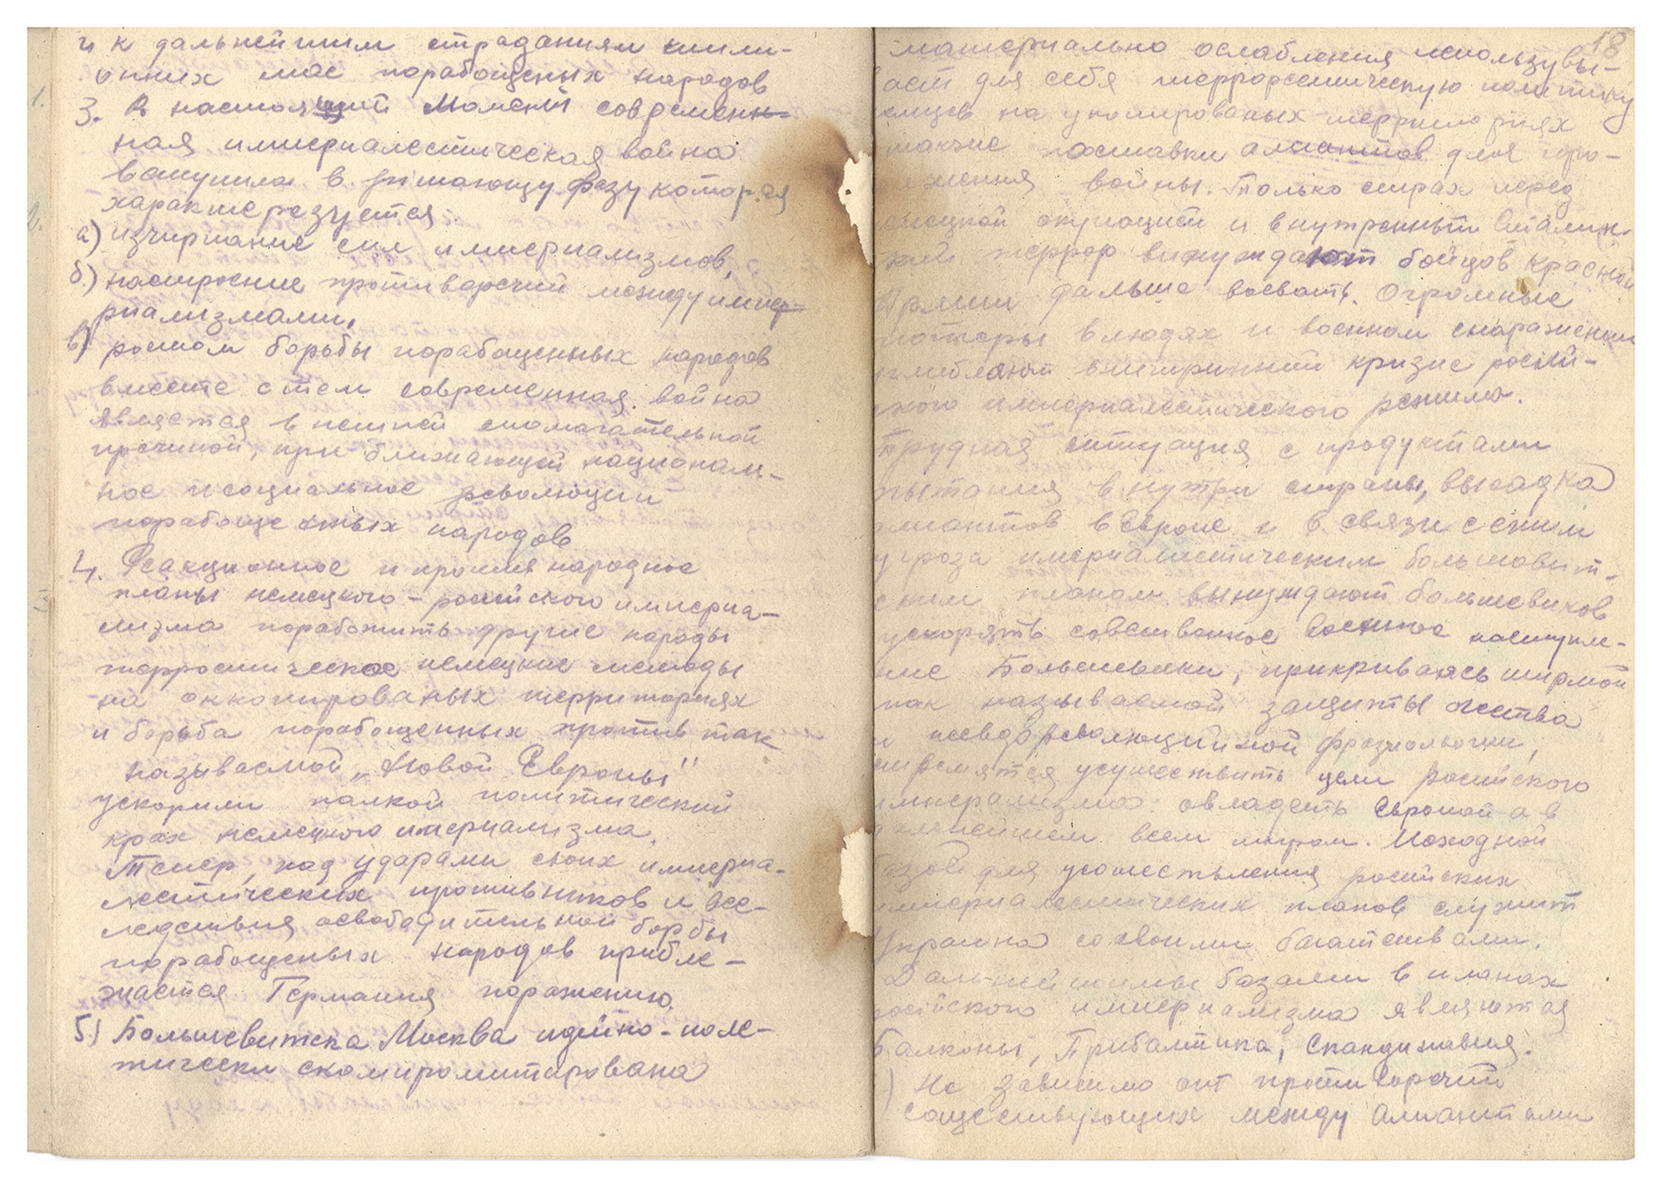 и к дальнейшим страданиям мили-
оних мас порабощеных народов
3. В настоящий Момент современ-
ная империалестическая война
вступила в ришающую фазу которая
характерезуется
а) изчирпание сил империализмов,
б.) настроение противоречий между импер-
риализмами,
в) ростом борьбы порабощенных народов
вместе с тем современная война
является внешней спомагательной
причиной, приближающей национал-
ное и социальное революции
порабощенных народов
4. Реакционное и противнародное
планы немецкого-российского империа-
лизма поработить другие народы
террростическое немецкие методы
на оккопированых территориях
и борьба порабощенных против так
называемой „Новой Европы"
ускорили полкой политический
крах немецкого империализма.
Тепер, под ударами своих империа-
лестических противников и все-
ледствия освободительной борьбы
порабощеных народов прибле-
жается Германия поражению.
5.) Большевитска Москва идейно-поле-
тически скомпромитирована
18
материально ослабления использувы-
ает для себя террорестическую политику
немцев на укопированых территориях
также поставки алиантов для про-
лжения войны. Только страх перед
немецкой окупацией и внутренный Сталинс-
кий террор винуждают бойцов красной
Армии дальше воевать. Огромные
потеры в людях и военном снаражении
внутринний кризис россий-
ского империалестического режима.
Трудная ситуация с продуктами
пытания внутри страны, высадка
алиантов в Европе и в связи с етим
угроза империалистическим большовит-
ским планам вынуждают большевиков
ускорять совственное военное наступле-
ние Большевики, прикриваясь ширмой
так называемой защиты отества
и псевдореволюцийной фразиологии,
стремятся усуществить цели росийского
империализма: овладеть Европой а в
дальнейшем всем миром. Исходной
базой для усоществления росийских
империалестических планов служит
Украина со своими богатствами.
Дальнейшимы базами в планах
росийского империализма являются
Балконы, Прибалтика, Скандинавия.
) Не зависимо от противоречий
соществующих между Алиантами